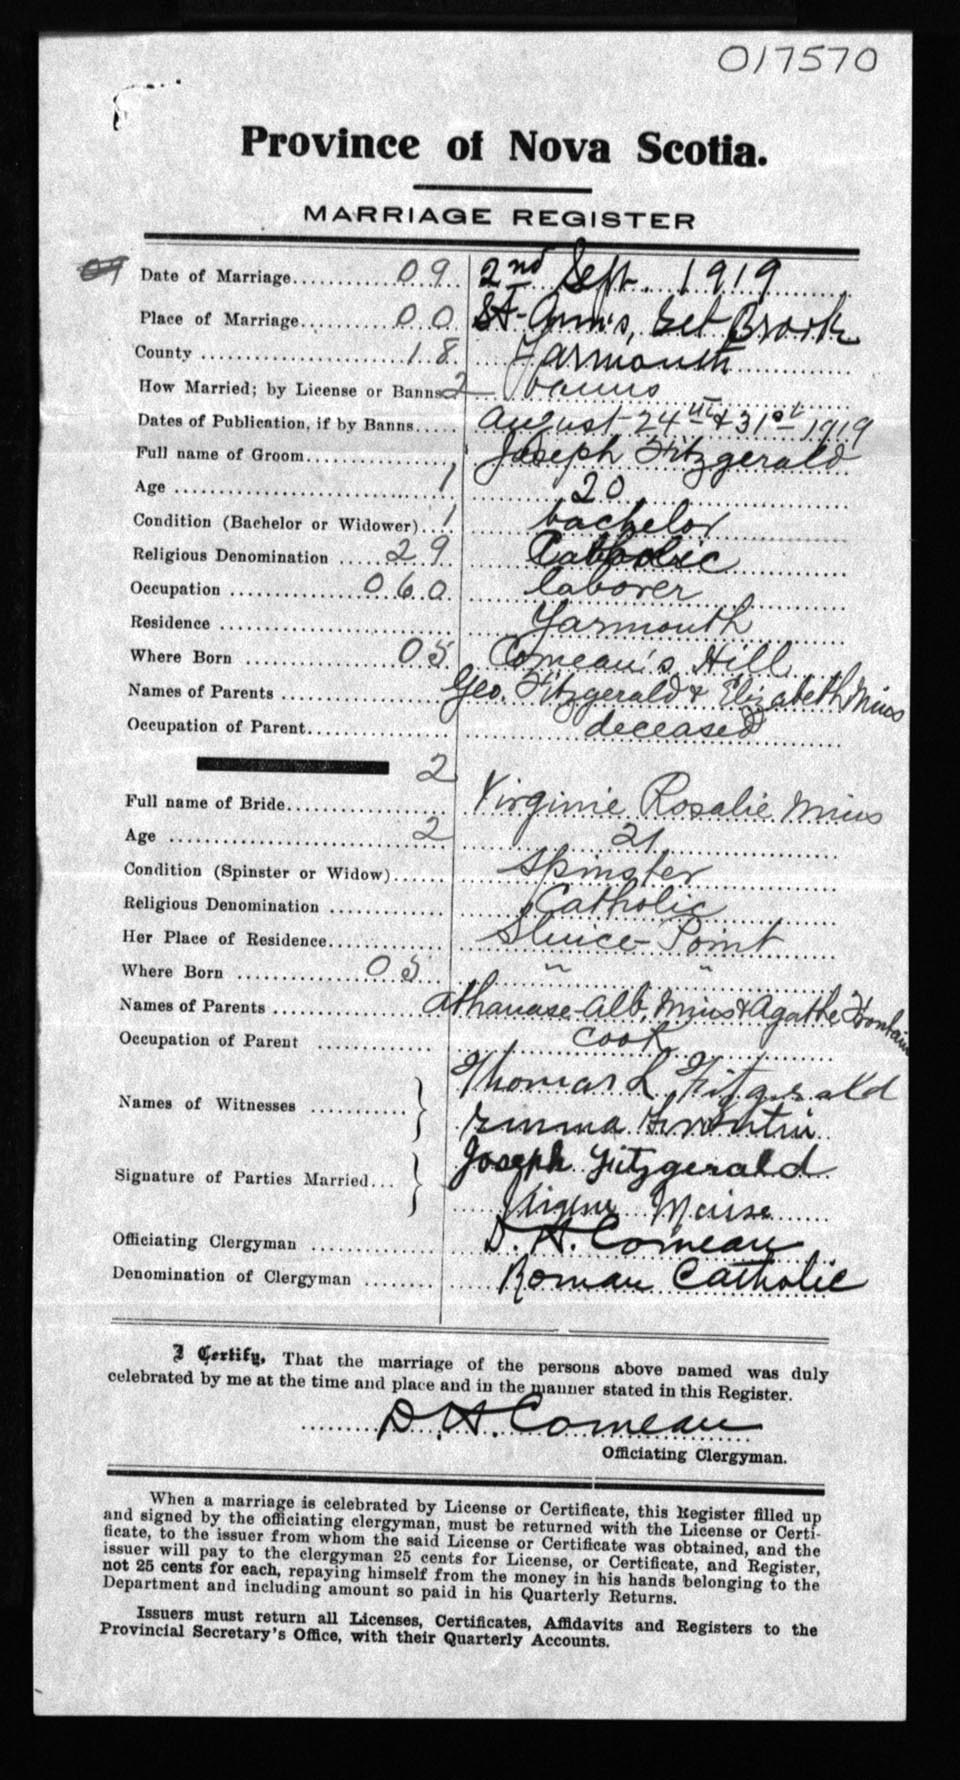 017570
Province of Nova Scotia.
MARRIAGE REGISTER
09 Date of Marriage 09 2nd Sept. 1919
Place of Marriage 00 St-Ann's, Eel Brook
County 18 Yarmouth
How Married; by License or Banns 2 banns
Dates of Publication, if by Banns August 24th & 31st 1919
Full name of Groom Joseph Fitzgerald
Age 1 20
Condition (Bachelor or Widower) 1 bachelor
Religious Denomination 29 Catholic
Occupation 060 laborer
Residence Yarmouth
Where Born 05 Comeau's Hill
Names of Parents Geo. Fitzgerald & Elizabeth Mius
Occupation of Parent deceased
2
Full name of Bride Virginie Rosalie Mius
Age 2 21
Condition (Spinster or Widow) Spinster
Religious Denomination Catholic
Her Place of Residence Sluice Point
Where Born 05 " "
Names of Parents Athanase Alb. Mius & Agathe Frontain
Occupation of Parent cook
Names of Witnesses Thomas L. Fitzgerald
Emma Frontin
Signature of Parties Married Joseph Fitzgerald
Maise
Officiating Clergyman D. H. Comeau
Denomination of Clergyman Roman Catholic
I Certify, That the marriage of the persons above named was duly
celebrated by me at the time and place and in the manner stated in this Register.
D. H. Comeau
Officiating Clergyman.
When a marriage is celebrated by License or Certificate, this Register filled up
and signed by the officiating clergyman, must be returned with the License or Certi-
ficate, to the issuer from whom the said License or Certificate was obtained, and the
issuer will pay to the clergyman 25 cents for License, or Certificate, and Register,
not 25 cents for each, repaying himself from the money in his hands belonging to the
Department and including amount so paid in his Quarterly Returns.
Issuers must return all Licenses, Certificates, Affidavits and Registers to the
Provincial Secretary's Office, with their Quarterly Accounts.